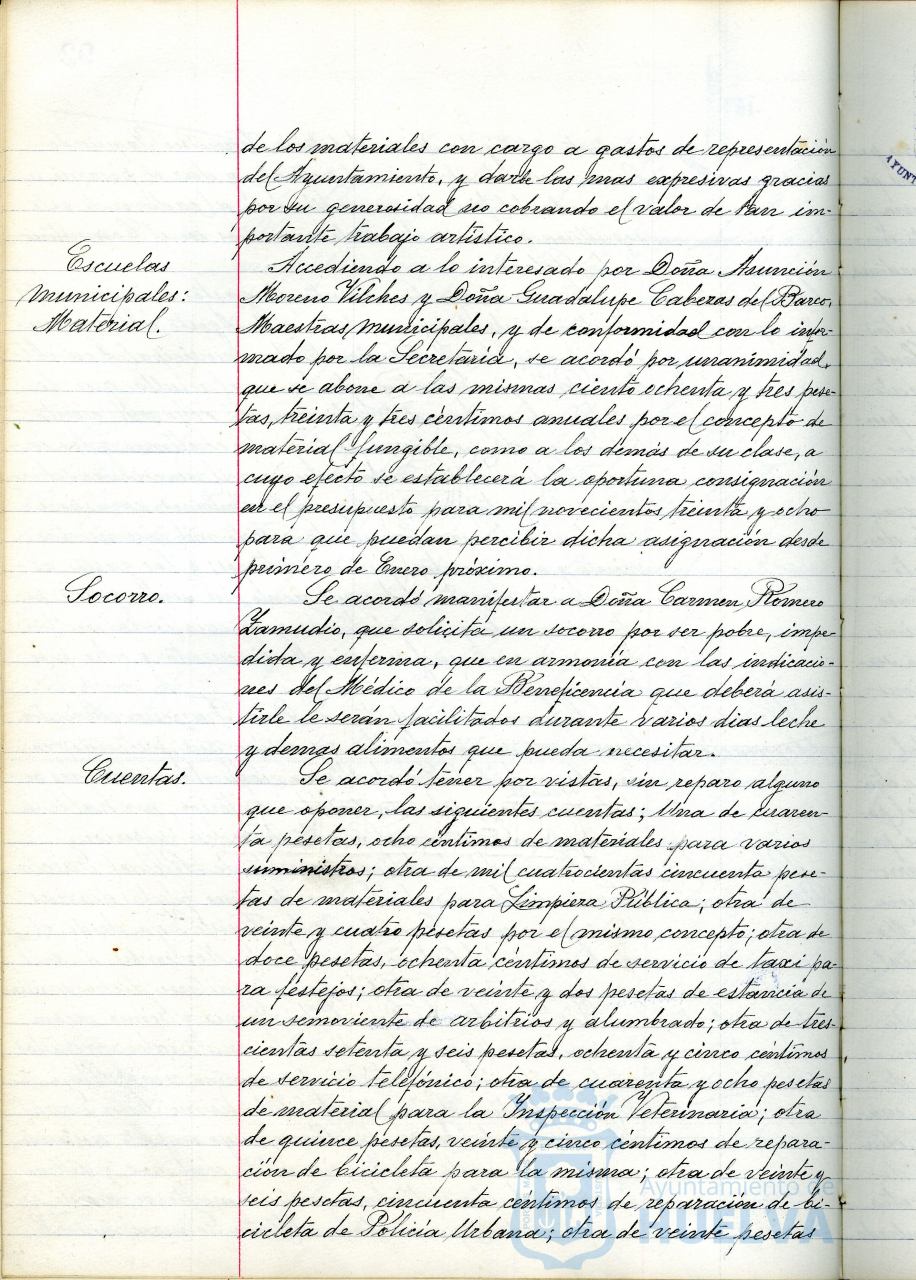 de los materiales con cargo a gastos de representación
del Ayuntamiento, y darle las mas expresivas gracias
por su generosidad no cobrando el valor de tan im-
portante trabajo artístico.
Escuelas
municipales:
Material.
Accediendo a lo interesado por Doña Asunción
Moreno Vilches y Doña Guadalupe Cabezas del Barco,
Maestras municipales, y de conformidad con lo infor-
mado por la Secretaría, se acordó por unanimidad,
que se abone a las mismas ciento ochenta y tres pese-
tas, treinta y tres céntimos anuales por el concepto de
material fungible, como a los demás de su clase, a
cuyo efecto se establecerá la oportuna consignación
en el presupuesto para mil novecientos treinta y ocho
para que puedan percibir dicha asignación desde
primero de Enero próximo.
Socorro.
Se acordó manifestar a Doña Carmen Romero
Zamudio, que solicita un socorro por ser pobre, impe-
dida y enferma, que en armonía con las indicacio-
nes del Médico de la Beneficencia que deberá asis-
tirle le serán facilitados durante varios dias leche
y demas alimentos que pueda necesitar.
Cuentas.
Se acordó tener por vistas, sin reparo alguno
que oponer, las siguientes cuentas; Una de cuaren-
ta pesetas, ocho céntimos de materiales para varios
suministros; otra de mil cuatrocientas cincuenta pese-
tas de materiales para Limpieza Pública; otra de
veinte y cuatro pesetas por el mismo concepto; otra de
doce pesetas, ochenta céntimos de servicio de taxi pa-
ra festejos; otra de veinte y dos pesetas de estancia de
un semoviente de arbitrios y alumbrado; otra de tres-
cientas setenta y seis pesetas, ochenta y cinco céntimos
de servicio telefónico; otra de cuarenta y ocho pesetas
de material para la Inspección Veterinaria; otra
de quince pesetas, veinte y cinco céntimos de repara-
ción de bicicleta para la misma; otra de veinte y
seis pesetas, cincuenta céntimos de reparación de bi-
cicleta de Policía Urbana; otra de veinte pesetas
Ayuntamiento de
HUELVA